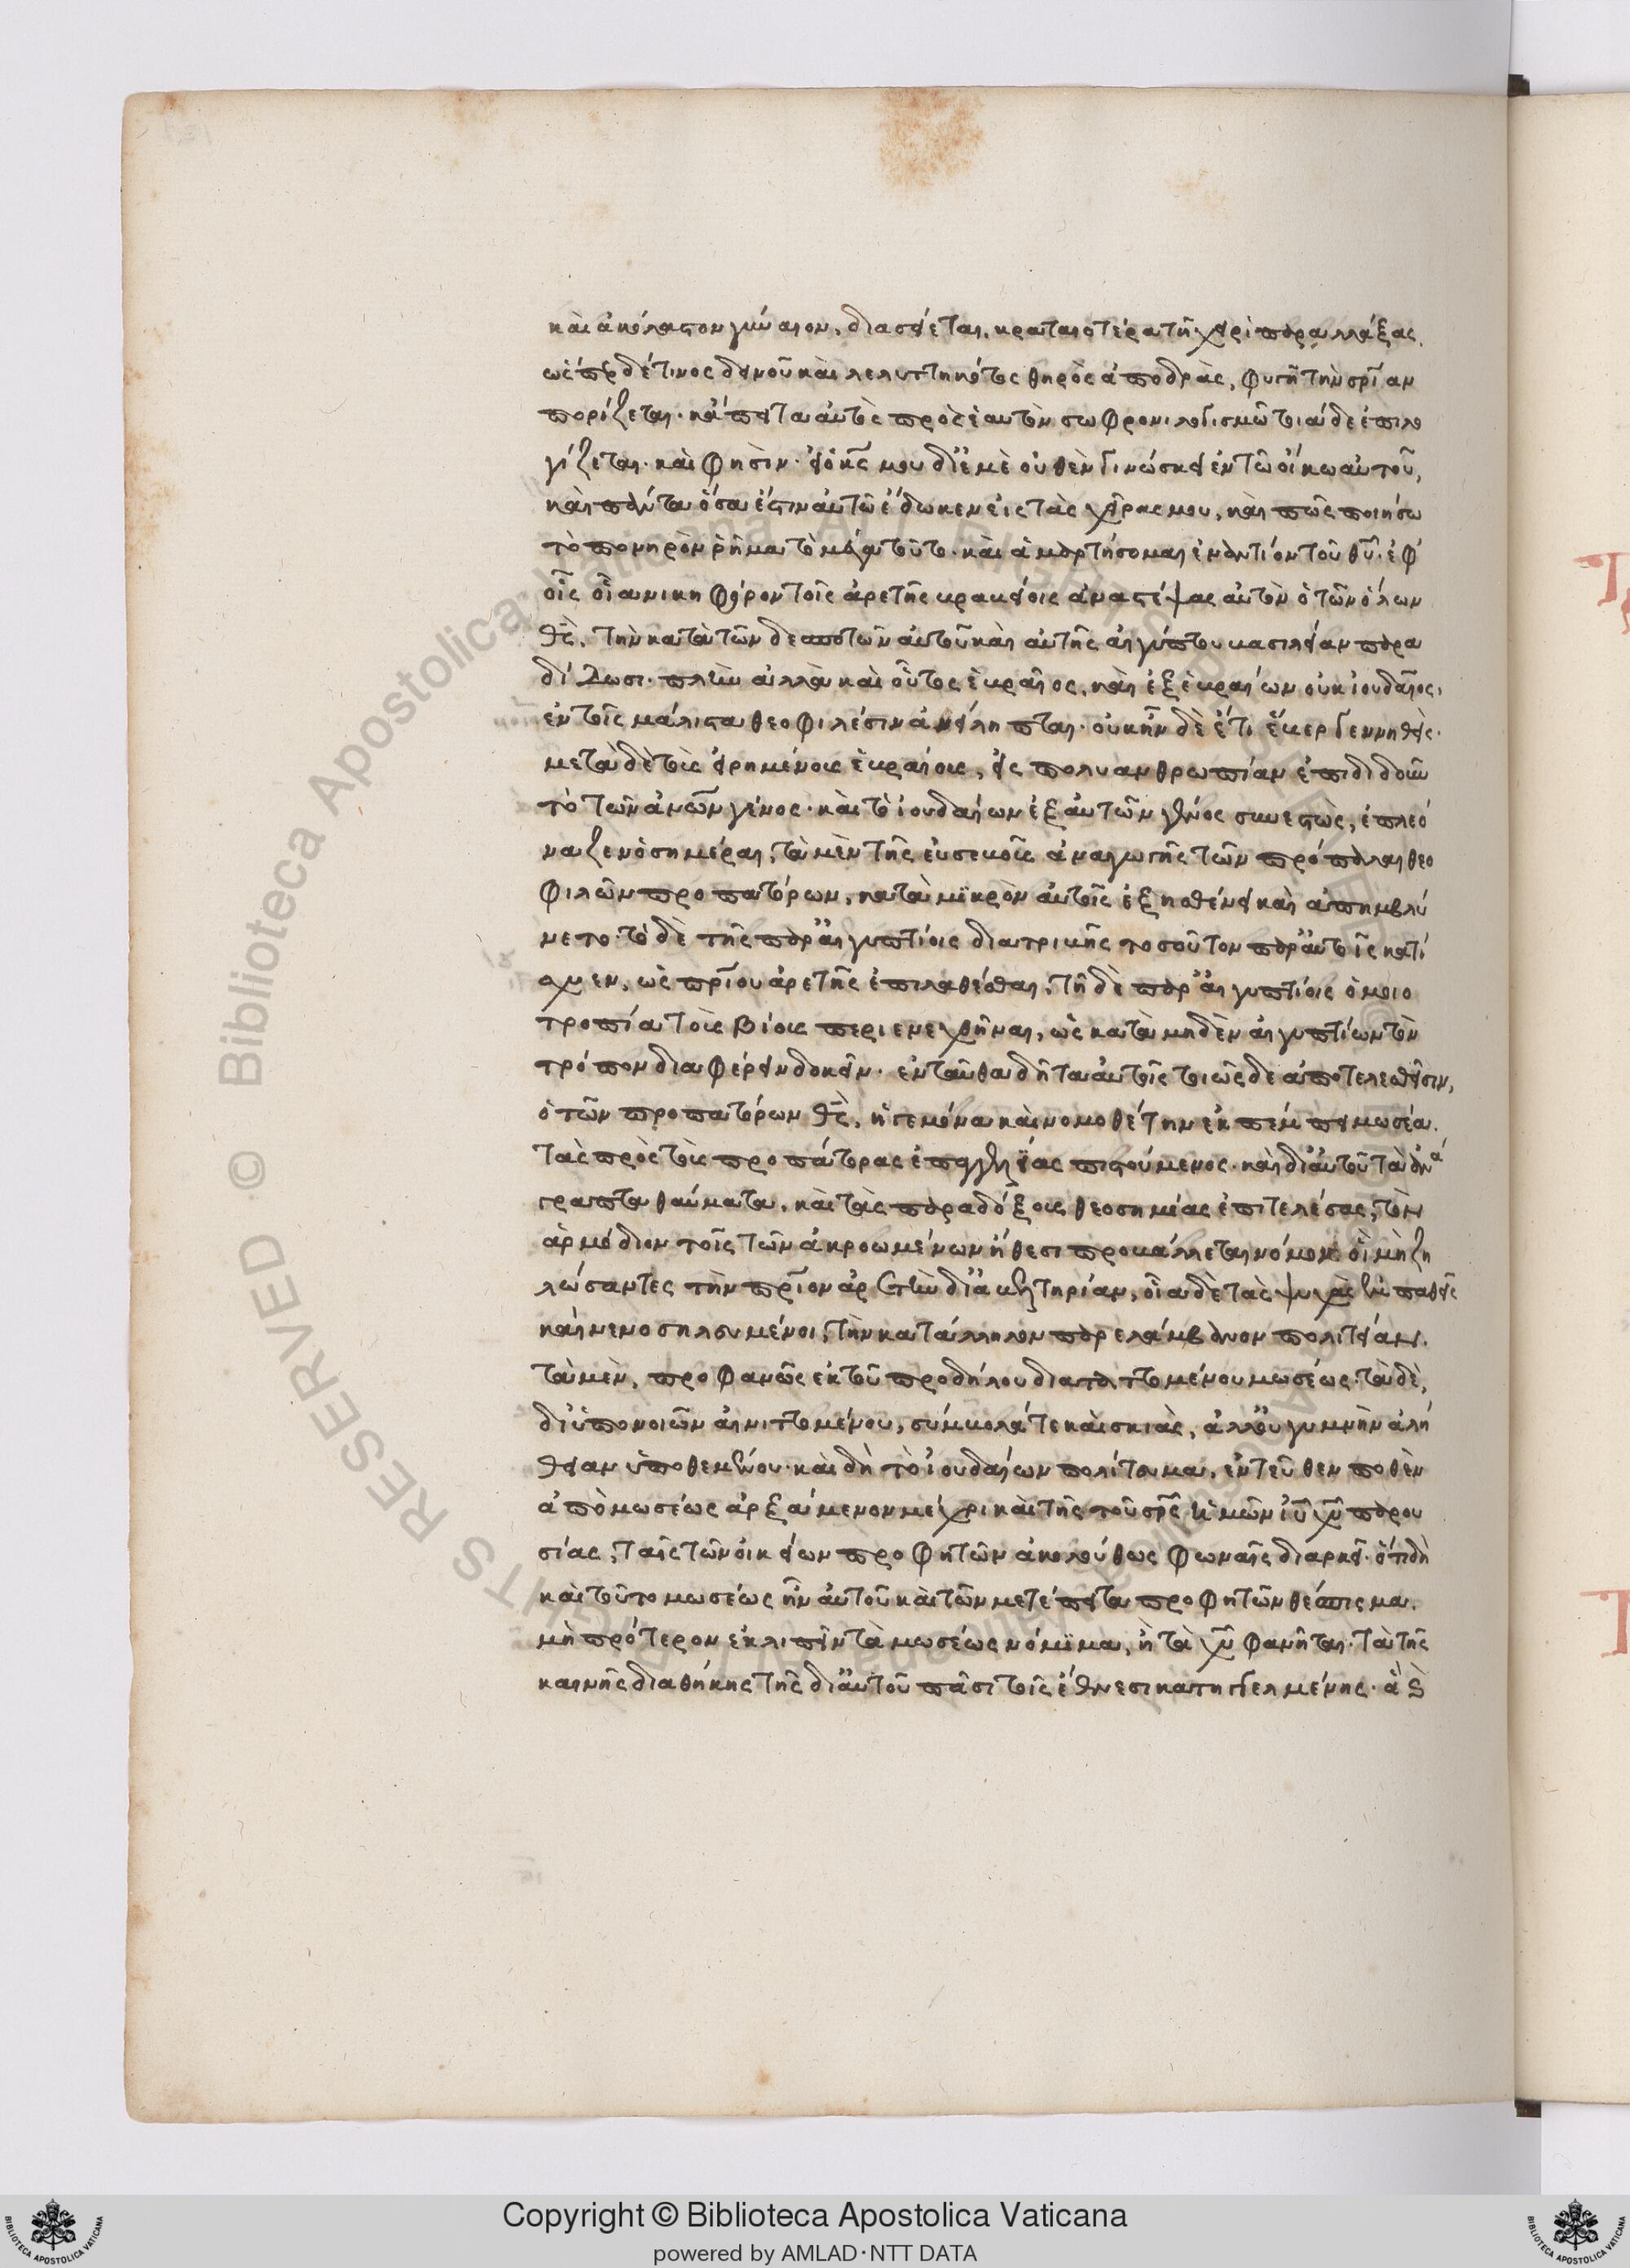 καὶ ἀκόλαστον γύναιον, διασείεται, κραταιοτέρα τῇ χειρὶ παραλλάξας,
ὡσπερ δέ τινος δεινοῦ καὶ λελυττηκότος θηρὸς ἀποδρὰς, φυγῇ τὴν σρίαν
πορίζεται. κἄπειτα αὐτὸς πρὸς ἑαυτὸν σώφρονι λογισμῶ τοιάδε ἐπιλο
γίζεται. καὶ φησίν. εἰ ὁ κς μου δι ἐμὲ οὐθὲν γινώσκει ἐν τῶ οἴκω αὐτοῦ,
καὶ πάντα ὅσα ἐστιν αὐτῶ ἔδωκεν εἰς τὰς χεῖρας μου, καὶ πῶς ποιήσω
τὸ πονηρὸν ῥῆμα τὸ μέγα τοῦτο. καὶ ἁμαρτήσομαι ἐναντίον τοῦ θυ. ἐφ
οἷς οἷα νικηφόρον τοῖς ἀρετῆς βραβείοις ἀναστέψας αὐτὸν ὁ τῶν ὅλων
θς, τὴν κατὰ τῶν δεσποτῶν αὐτοῦ καὶ αὐτῆς αἰγύπτου βασιλείαν παρα
δίδωσι. πλὴν ἀλλὰ καὶ οὗτος ἑβραῖος, καὶ ἐξ ἑβραίων οὐκ ἰουδαῖος,
ἐν τοῖς μάλιστα θεοφιλέσιν ἀνείληπται. οὐκ ἦν δὲ ἔτι ἅπερ γεννηθείς.
μετὰ δὲ τοὺς εἰρημένους ἑβραίους, εἰς πολυανθρωπίαν ἐπιδιδοὺν
τὸ τῶν ἀνων γένος. καὶ τὸ ἰουδαίων ἐξ αὐτῶν γένος συνεστὼς, ἐπλεό
ναζεν ὁσημέραι, τὰ μὲν τῆς εὐσεβοῦς ἀναγωγῆς τῶν πρόπαλαι θεο
φιλῶν προπατόρων, κατὰ μϊκρὸν αὐτοῖς ἐξησθένει καὶ ἀπημβλύ
νετο. τὸ δὲ τῆς παρ αἰγυπτίοις διατριβῆς τοσοῦτον παρ αὐτοῖς κατί
σχυεν, ὡς πρίου ἀρετῆς ἐπιλαθέσθαι, τῇ δὲ παρ αἰγυπτίοις ὁμοιο
τροπία τοὺς βίους περιενεχθῆναι, ὡς κατὰ μηδὲν αἰγυπτίων τὸν
τρόπον διαφέρειν δοκεῖν. ἐνταῦθα δῆτα αὐτοῖς τοιῶσδε ἀποτελεσθεῖσιν,
ὁ τῶν προπατόρων θς, ἡγεμόνα καὶ νομοθέτην ἐκπέμπει μωσέα.
τὰς πρὸς τοὺς προπάτορας ἐπαγγελίας πιστούμενος. καὶ δι αὐτοῦ τὰ ἀνά
γραπτα θαύματα, καὶ τὰς παραδόξους θεοσημίας ἐπιτελέσας, τὸν
ἁρμόδιον τοῖς τῶν ἀκροωμένων ἤθεσι προβάλλεται νόμον. οἱ μὴ ζη
λώσαντες τὴν πρῖον ἀρετὴν δι ἀβελτηρίαν, οἷα δὲ τὰς ψυχὰς ἐμπαθεῖς
καὶ νενοσηλευμένοι, τὴν κατάλληλον παρελάμβανον πολιτείαν.
τὰ μὲν, προφανῶς ἐκ τοῦ προδήλου διαταττομένου μωσέως. τὰ δὲ,
δι ὑπονοιῶν αἰνιττομένου, σύμβολά τε καὶ σκιὰς, ἀλλ οὐ γυμνὴν ἀλή
θειαν ὑποθεμένου. καὶ δὴ τὸ ἰουδαίων πολίτευμα, ἐντεῦθεν ποθὲν
ἀπὸ μωσέως ἀρξάμενον μέχρι καὶ τῆς τοῦ σρς ἡμῶν ἰυ χυ παρου
σίας, ταῖς τῶν οἰκείων προφητῶν ἀκολούθως φωναῖς διαρκεῖ. ἐπεὶ δὴ
καὶ τοῦτο μωσέως ἦν αὐτοῦ καὶ τῶν μετέπειτα προφητῶν θέσπισμα.
μὴ πρότερον ἐκλιπεῖν τὰ μωσέως νόμϊμα, ἢ τὰ χυ φανῆναι. τὰ τῆς
καινῆς διαθήκης τῆς δι αὐτοῦ πᾶσι τοῖς ἔθνεσι κατηγγελμένης. ἃ καὶ
Copyright © Biblioteca Apostolica Vaticana
powered by AMLAD·NTT DATA